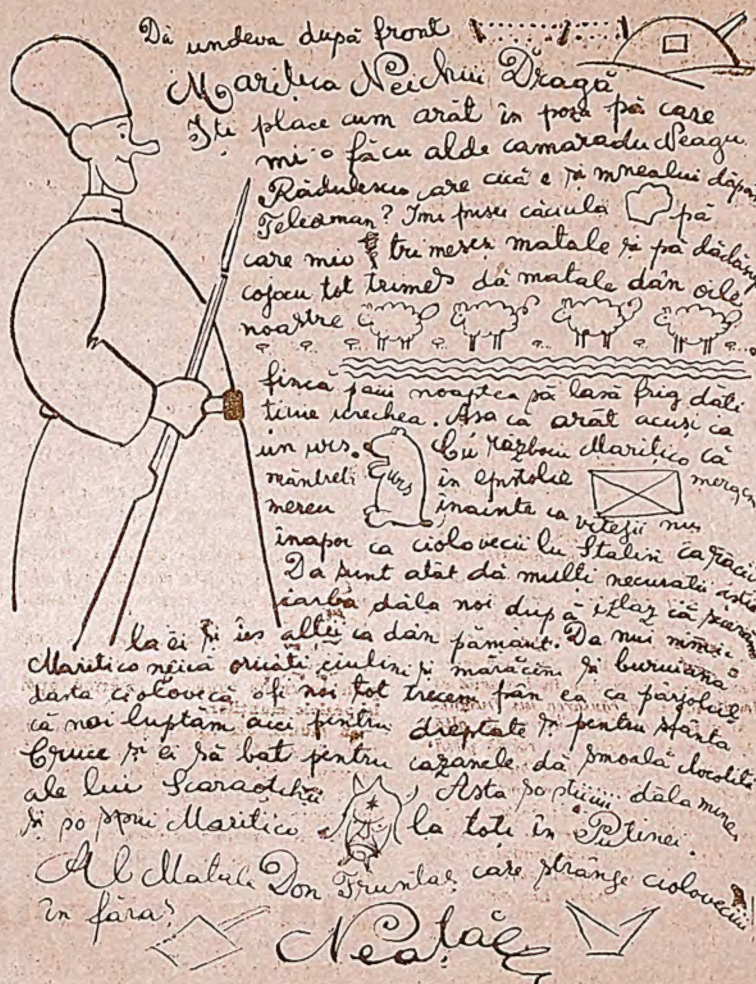 Dă undeva după front
Marițica Neichii Dragă
Iți place cum arăt în poza pă care
mi-o făcu alde camaradu Neagu
Rădulescu care cică e și mnealui dăpă
Teleoman? Imi pusei căciula pă
care miu trimeseși matale și pă dădăsup
cojocu tot trimes dă matale dân oile
noastre
fincă păici noaptea să lasă frig dăți
tiuie urechea. Așa că arăt acuși ca
un urs. Cu războiu Marițico că
urs
mântrebi în epistolie mergem
mereu înainte ca vitejii nu
înapoi ca ciolovecii lu Stalin ca racii
Da sunt atât dă mulți necurații ăștia
iarbă dăla noi după izlaz că
la ei și ies alții ca dân pământ. Da nui nimic
Marițico neică oricâți ciulini și mărăcini și buruiană
dasta ciolovecă ofi noi tot trecem pân ea ca pârjolul
că noi luptăm aici pintru dreptate și pentru sfânta
Cruce și ei să bat pentru cazanele dă smoală clocotită
ale lui Scaraoțchii. Asta so știi dăla mine
și so spui Marițico la toți în Putinei.
Al Matale Don Fruntaș care strânge ciolovecii
în făraș
Neață